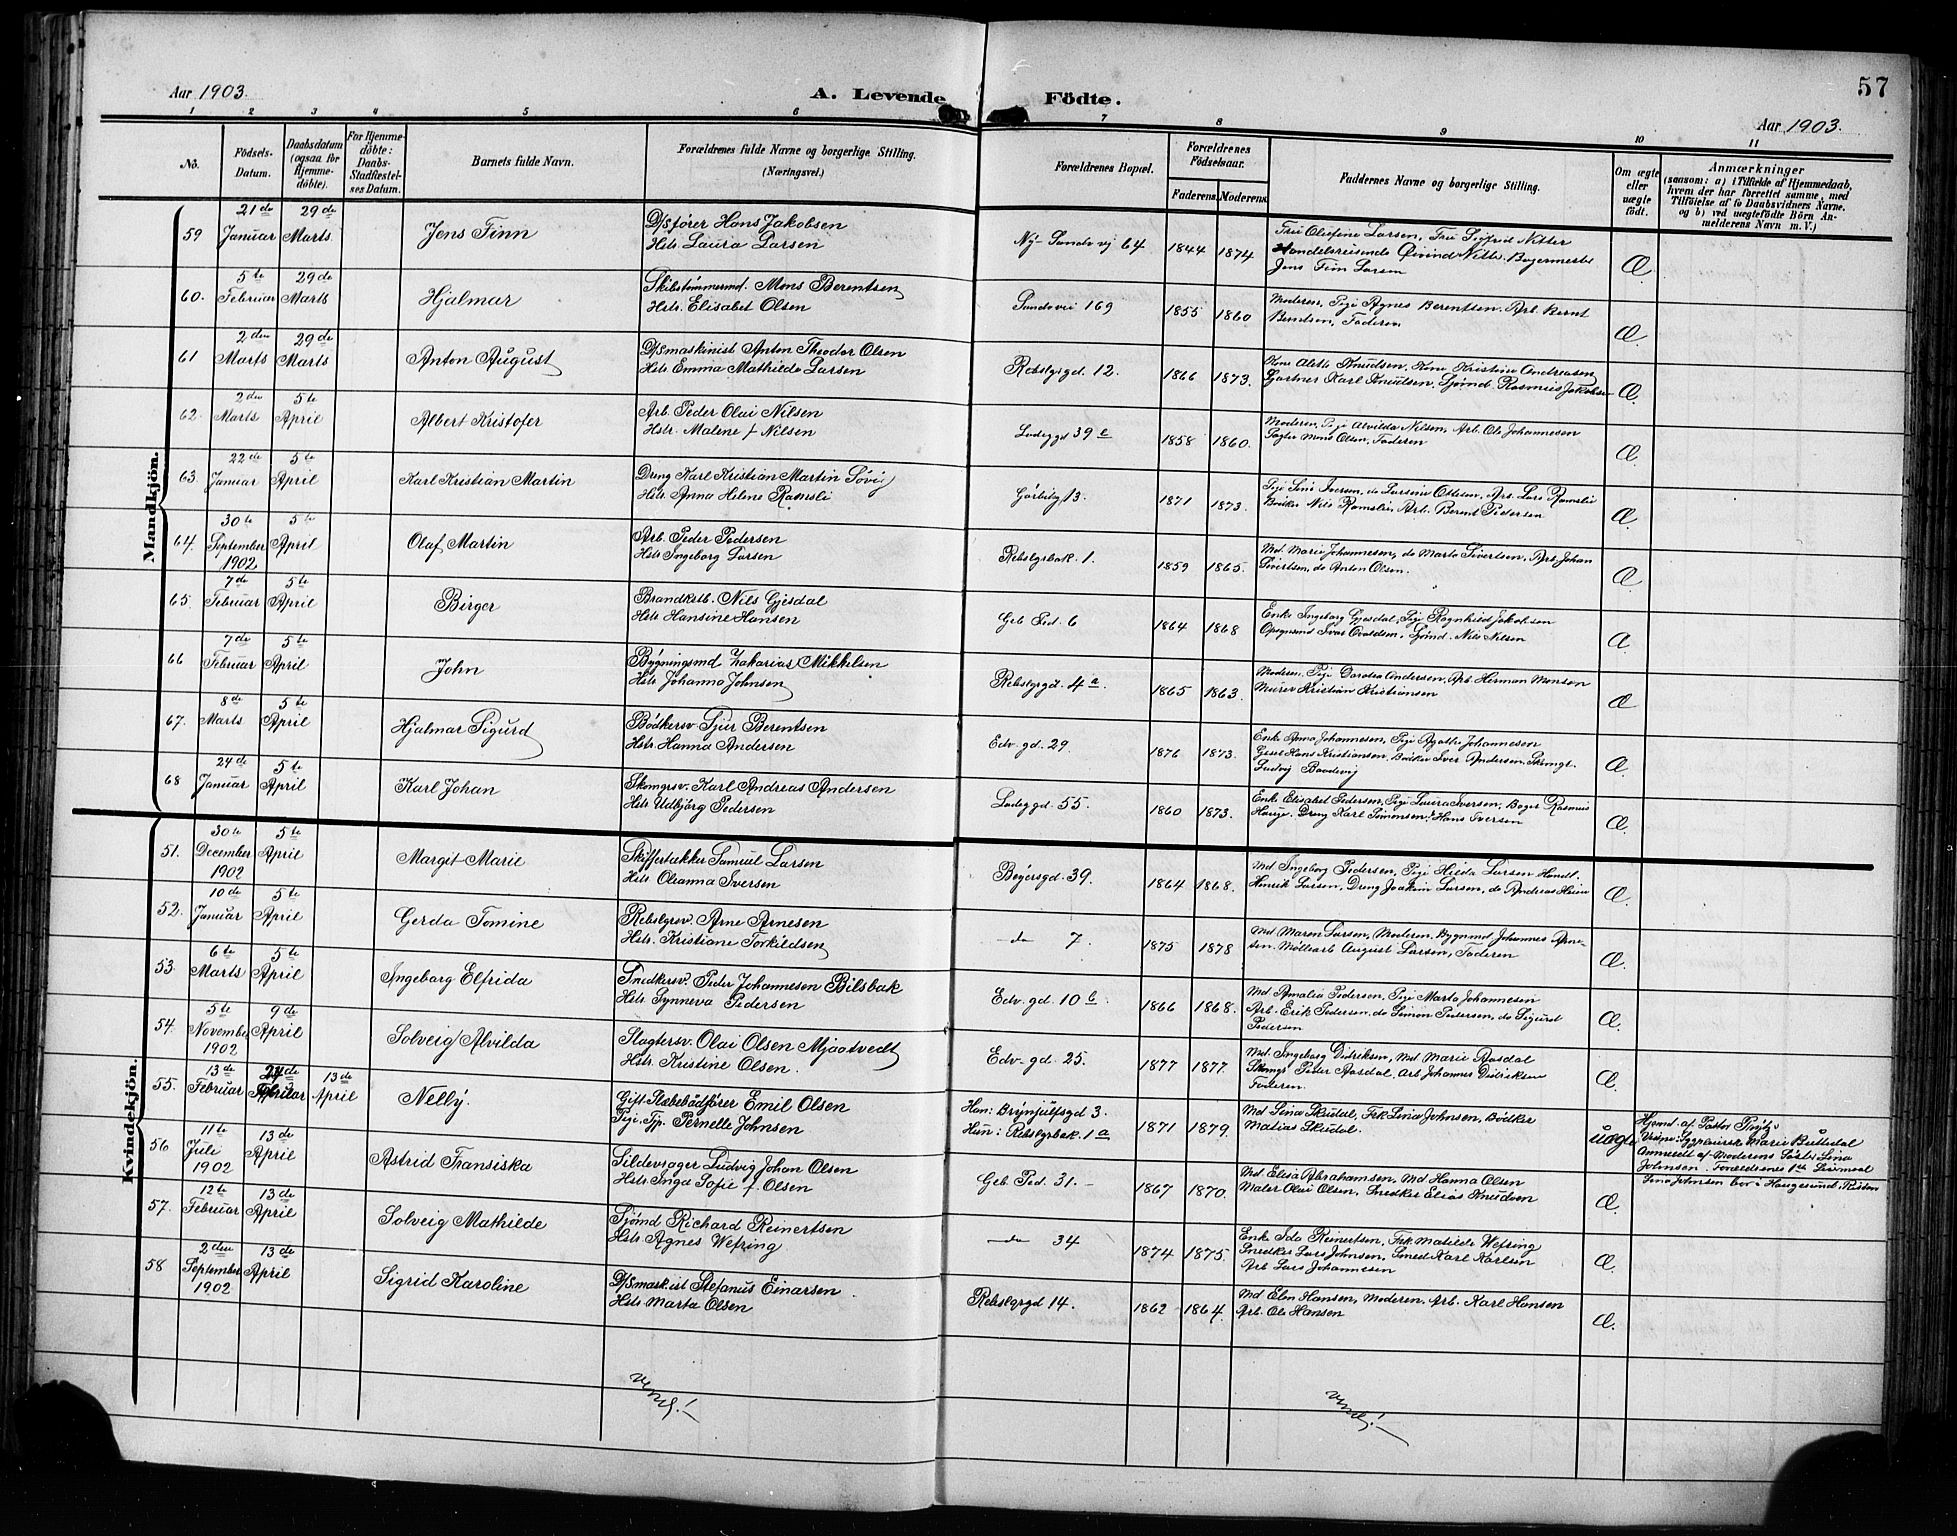 57
Aar 1903.
A. Levende Födte.
Aar 1903.
1 2 3 4 5 6 7 8 9 10 11
No.
Födsels-Datum.
Daabsdatum (ogsaa for Hjemme-döbte).
For Hjemme-döbte: Daabs-Stadfæstel-ses Datum.
Barnets fulde Navn.
Forældrenes fulde Navne og borgerlige Stilling. (Næringsvei.)
Forældrenes Bopæl.
Forældrenes Födselsaar.
Faderens. Moderens.
Faddernes Navne og borgerlige Stilling.
Om ægte eller uægte födt.
Anmærkninger
(saasom: a) i Tilfælde af Hjemmedaab, hvem der har forrettet samme, med Tilföielse af to Daabsvidners Navne, og b) ved uægtefödte Börn An-melderens Navn m. V.)
Mandkjön.
59 21de Januar 29de Marts Jens Finn
D/sfører Hans Jakobsen
Hstr. Laura Larsen
Ny-Sandv vj 64 1844 1874
Fru Olefine Larsen, Fru Sigfrid Nitter
Handelsreisende Øivind Nitter, Bagermester
Jens Finn Larsen
Æ
60. 5te Februar 29de Marts Hjalmar
Skibstømmermd. Mons Berentsen
Hstr. Elisabet Olsen
Sandsvei 169 1855 1860
Moderen, Pige Agnes Berentsen. Arb. Bernt
Berntsen, Faderen
Æ
61 2den Marts 29de Marts Anton August
D/Smaskinist Anton Theodor Olsen
Hstr. Emma Mathilde Larsen
Rebslgrgd. 12. 1866 1873.
Kone Alette Knudsen, Kone Kristine Andreasen
Gartner Karl Knudsen, Sjømd. Rasmus Jakobsen
Æ.
62. 2den Marts 5te April Albert Kristofer
Arb. Peder Olai Nilsen
Hstr. Malene f. Nilsen
Ladeggd 39 c 1858 1860.
Moderen, Pige Alvilda Nilsen, Arb. Ole Johannesen
Fagter Mons Olsen, Faderen
Æ.
63. 22de Januar 5te April Karl Kristian Martin
Dreng Karl Kristian Martin Søvig
Hstr. Anna Helene Ramsli
1871 1873.
Pige Sina Iversen, do Larsine Ottesen, Arb. Lars Ramslie
Bødker Nils Ramslie, Arb. Berent Pedersen
Æ.
64. 30te September 1902 5te April Olaf Martin
Arb. Peder Pedersen
Hstr. Ingeborg Larsen
Rebslgrbak. 1. 1859 1865.
Md. Marie Johannesen, do Marta Sivertsen, Arb. Johan
Sivertsen, do Anton Olsen.
Æ
65. 7de Februar 5te April Birger
Brandkstb. Nils Gjesdal
Hstr. Hansine Hansen
Geb Ped. 6 1864 1868
Enke Ingeborg Gjesdal, Pige Ragnhild Jakobsen
Opsynsmd Ivar Evaldsen, Sjømd. Nils Nilsen
Æ
66 7de Februar 5te April John
Bygningsmd Zakarias Mikkelsen
Hstr. Johanna Johnsen
Rebslgrgd. 4 a. 1865 1863.
Moderen, Pige Dorotea Andersen, Arb Herman Monsen
Murer Kristian Kristiansen
Æ
67. 8de Marts 5te April Hjalmar Sigurd
Bødkersv. Sjur Berentsen
Hstr. Hanna Andersen
Edv. gd. 29. 1876 1873.
Enke Anna Johannesen, Pige Agathe Johannesen
Gesel Hans Kristiansen, Bødker Iver Andersen, Skomgs.
Ludvig
Æ
68 24de Januar 5te April Karl Johan
Skomgrsv. Karl Andreas Andersen
Hstr. Udbjørg Pedersen
Ladeggd. 55. 1860 1873.
Enke Elisabet Pedersen, Pige Laura Iversen, Bager Rasmus
Hauge, Dreng Karl Simonsen, Hans Iversen
Æ
Kvindekjön.
51. 30te December 1902 5te April Margit Marie
Skiffertækker Samuel Larsen
Hstr. Oleanna Iversen
Bøiersgd. 39. 1864 1868.
Md Ingeborg Pedersen, Pige Hilda Larsen Handl.
Henrik Larsen, Dreng Joakim Larsen, do Andreas Heien
Æ.
52. 10de Januar 5te April Gerda Tomine
Rebslgrsv. Arne Arnesen
Hstr. Kristiane Torkildsen
- do 7. 1875 1878
Md Maren Larsen, Moderen, Bygnmd Johannes Arne-
sen, Møllearb August Larsen, Faderen
Æ.
53. 6te Marts 5te April Ingeborg Elfrida
Snedkersv. Peder Johannesen Bilsbak
Hstr. Synneva Pedersen
Edv. gd. 10 b. 1866 1868.
Md Amalia Pedersen, Pige Marta Johannesen
Arb. Erik Pedersen, do Simon Pedersen, do Sigurd
Pedersen
Æ.
54. 5te November 1902 9de April Solveig Alvilda
Slagtersv. Olai Olsen Mjaatvedt
Hstr. Kristine Olsen.
Edv. gd. 25. 1877 1877.
Md. Ingeborg Didriksen, Md Marie Aasdal
Skomgs Peter Aasdal, Arb Johannes Didriksen
Faderen.
Æ.
55. 13de Februar 24de Februar 13de April Nelly.
Gift Slæbebaadfører Emil Olsen
Pige, Tjp. Pernelle Johnsen
Han: Brynjulfsgd 3.
Hun: Rebslgrbak. 1 a 1871 1879.
Md Sina Skudal, Frk Lina Johnsen, Bødker
Matias Skudal.
uægte
Hjemd. af Pastor
Marie Buttedal
Anmeldt af Moderens Søster Lina
Johnsen. Forældrenes 1ste Leiermaal
Lina Johnsen bor i Haugesund
56 11te Juli 1902 13de April Astrid Fransiska
Sildevrager Ludvig Johan Olsen
Hstr. Inga Sofie f. Olsen
Geb Ped. 31.- 1867 1870.
Md. Elisa Abrahamsen, Md Hanna Olsen
Maler Olai Olsen, Snedker Elias Knudsen
Æ
57. 12te Februar 13de April Solveig Mathilde
Sjømd Richard Reinertsen
Hstr. Agnes Wefring
- do 34 1874 1875.
Enke Ida Reinertsen, Frk Matilde Wefring
Snedker Lars Johnsen, Smed Karl Karlsen
Arb Lars Johannesen
Æ.
58 2den September 1902 13de April Sigrid Karoline
D/Smask.ist Stefanus Einarsen
Hstr. Marta Olsen
Rebslgrgd 14. 1862 1864.
Md Elen Hansen, Moderen, Arb. Karl Hansen
Arb. Ole Hansen
Æ.
Vend!
Vend!